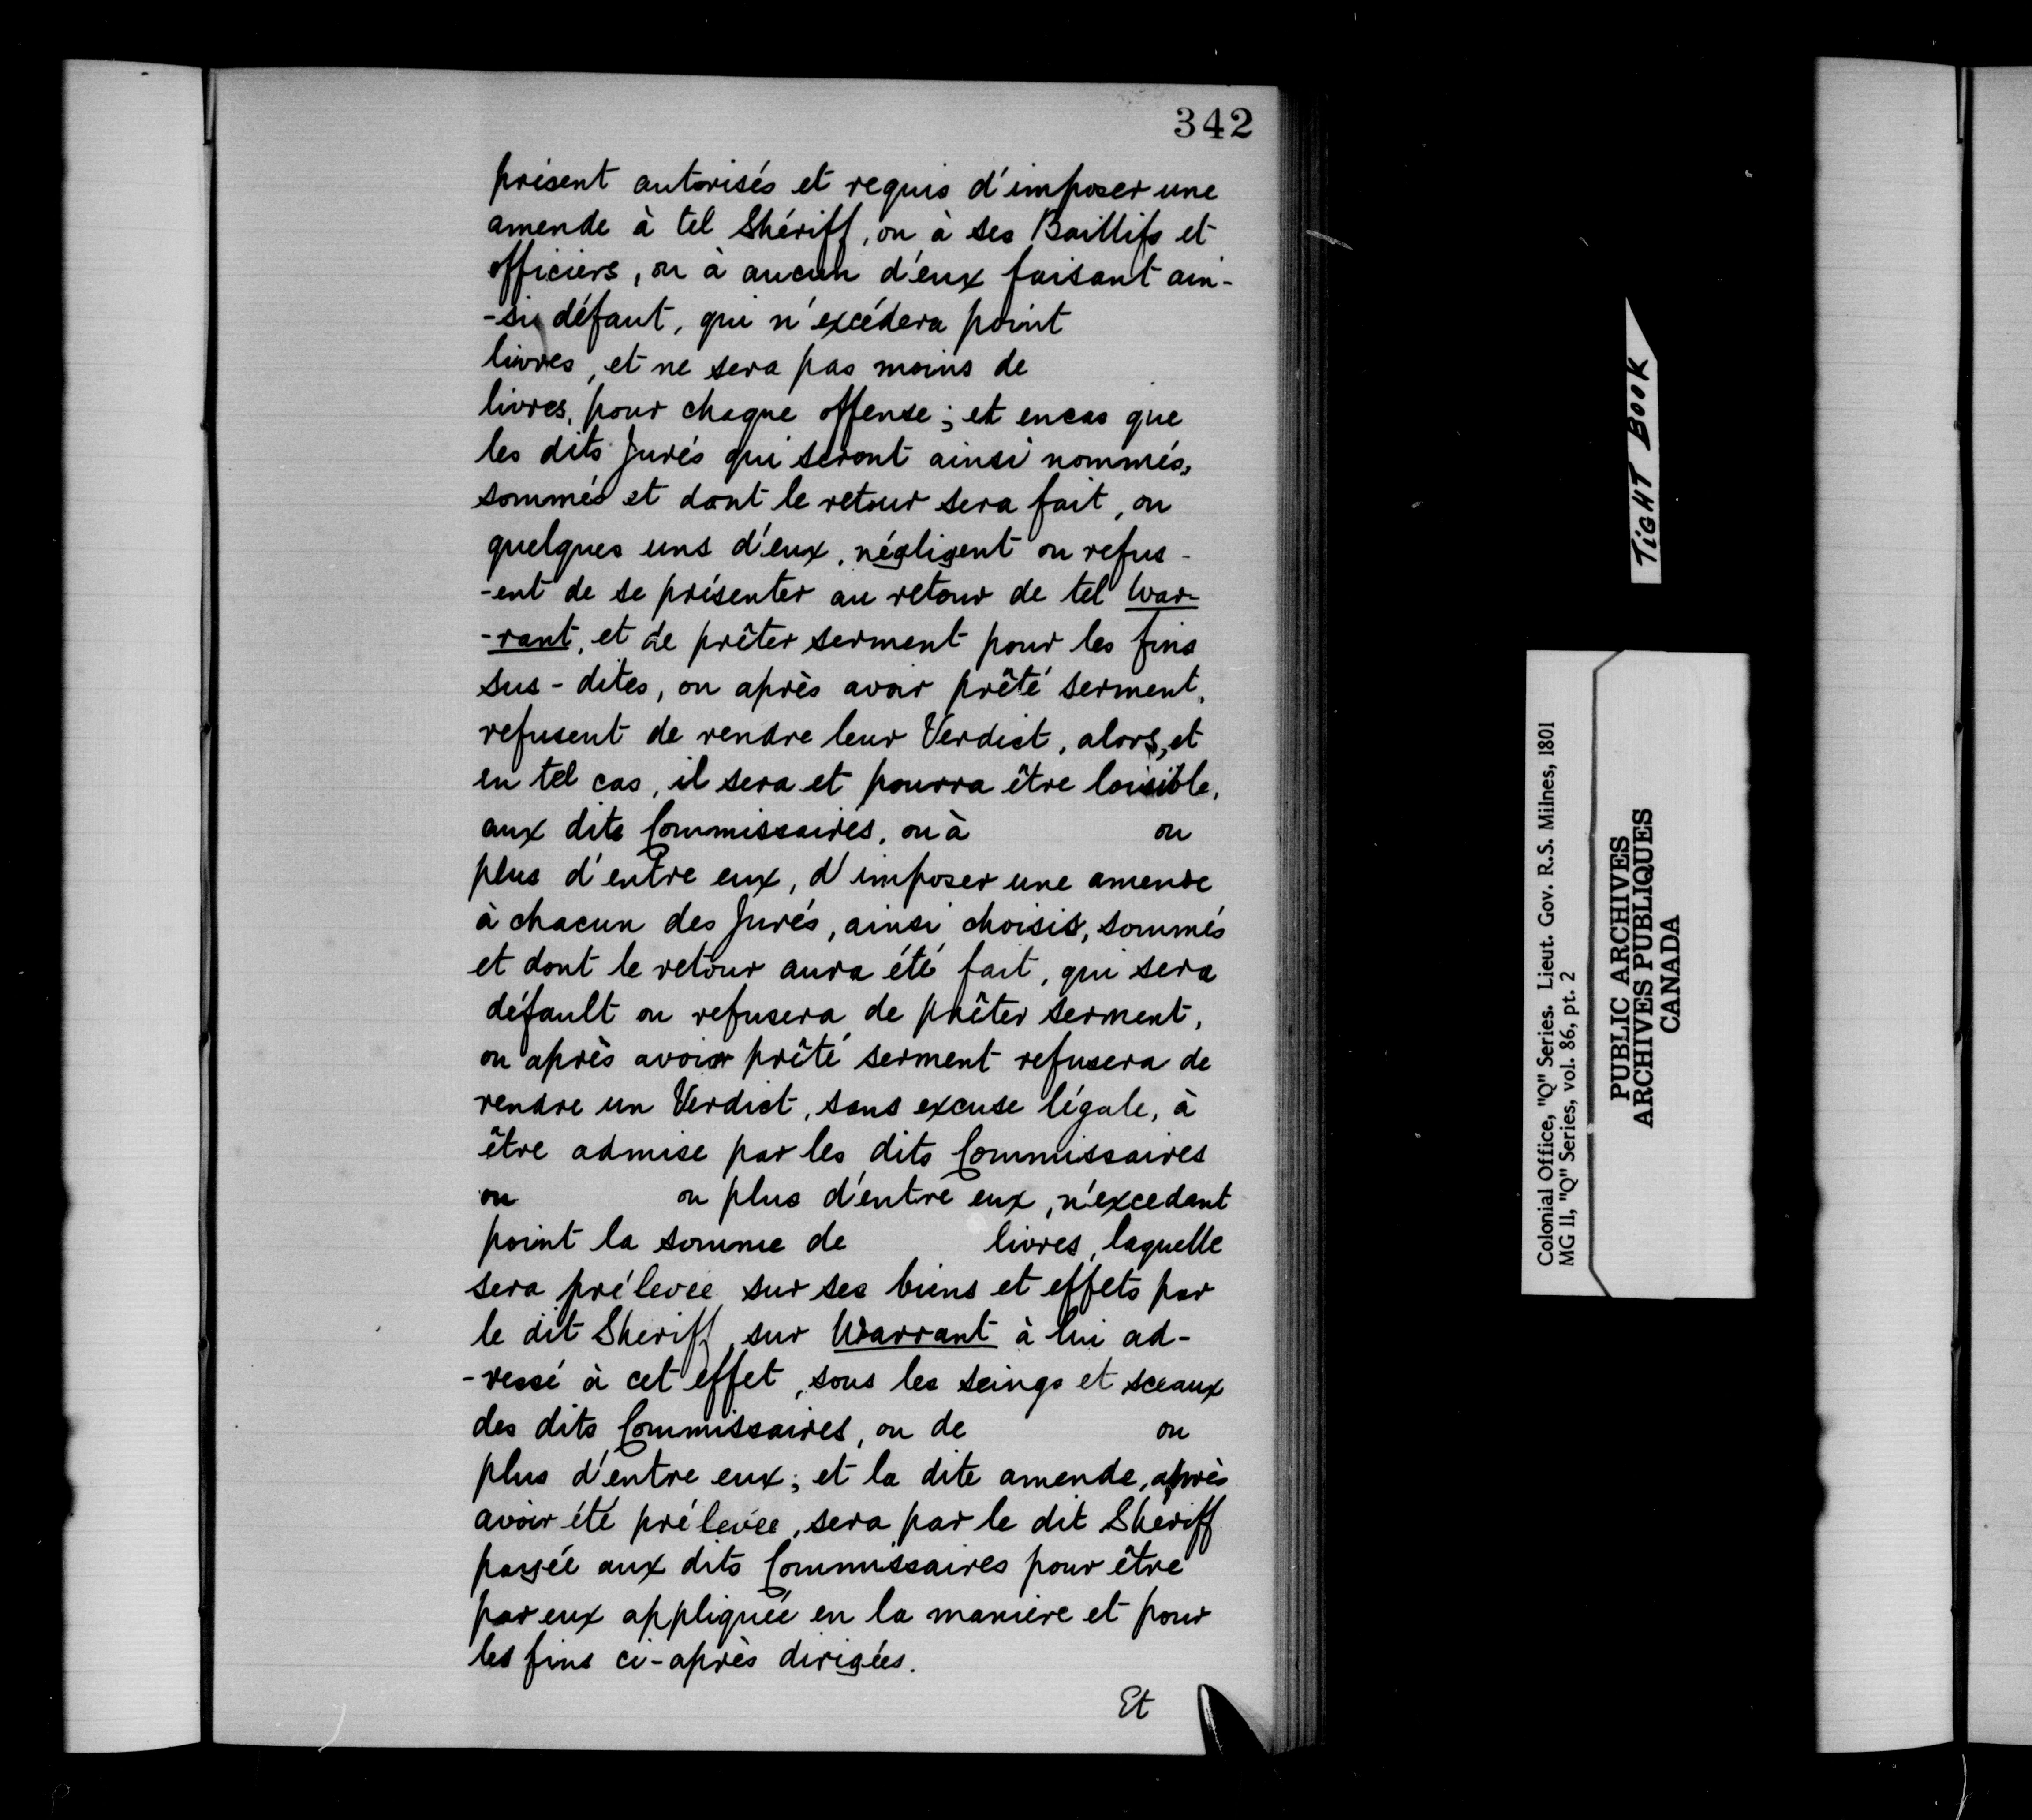 342
présent autorisés et requis d'imposer une
amende à tel Shériff, ou à ses Baillifs et
officiers, ou à aucun d'eux faisant ain-
-si défaut, qui n'excédera point
livres, et ne sera pas moins de
livres, pour chaque offense; et encas que
les dits Jurés qui seront ainsi nommés,
sommés et dont le retour sera fait, ou
quelques uns d'eux, négligent ou refus-
-ent de se présenter au retour de tel War-
-rant, et de prêter serment pour les fins
sus-dites, ou après avoir prêté serment,
refusent de rendre leur Verdict, alors, et
en tel cas, il sera et pourra être loisible,
aux dits Commissaires, ou à ou
plus d'entre eux, d'imposer une amende
à chacun des Jurés, ainsi choisis, sommés
et dont le retour aura été fait, qui sera
défault ou refusera de prêter serment,
ou après avoir prêté serment refusera de
rendre un Verdict, sans excuse légale, à
être admise par les dits Commissaires
ou ou plus d'entre eux, n'excedant
point la somme de livres, laquelle
sera prélevée sur ses biens et effets par
le dit Sheriff, sur Warrant à lui ad-
-ressé à cet effet, sous les seings et sceaux
des dits Commissaires, ou de ou
plus d'entre eux; et la dite amende, après
avoir été prélevée, sera par le dit Shériff
payée aux dits Commissaires pour être
par eux appliquée en la manière et pour
les fins ci-après dirigées.
Et
TIGHT BOOK
Colonial Office, "Q" Series. Lieut. Gov. R.S. Milnes, 1801
MG 11, "Q" Series, vol. 86, pt. 2
PUBLIC ARCHIVES
ARCHIVES PUBLIQUES
CANADA